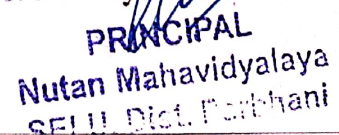 PRINCIPAL
Nutan Mahavidyalaya
SELU, Dist. Parbhani